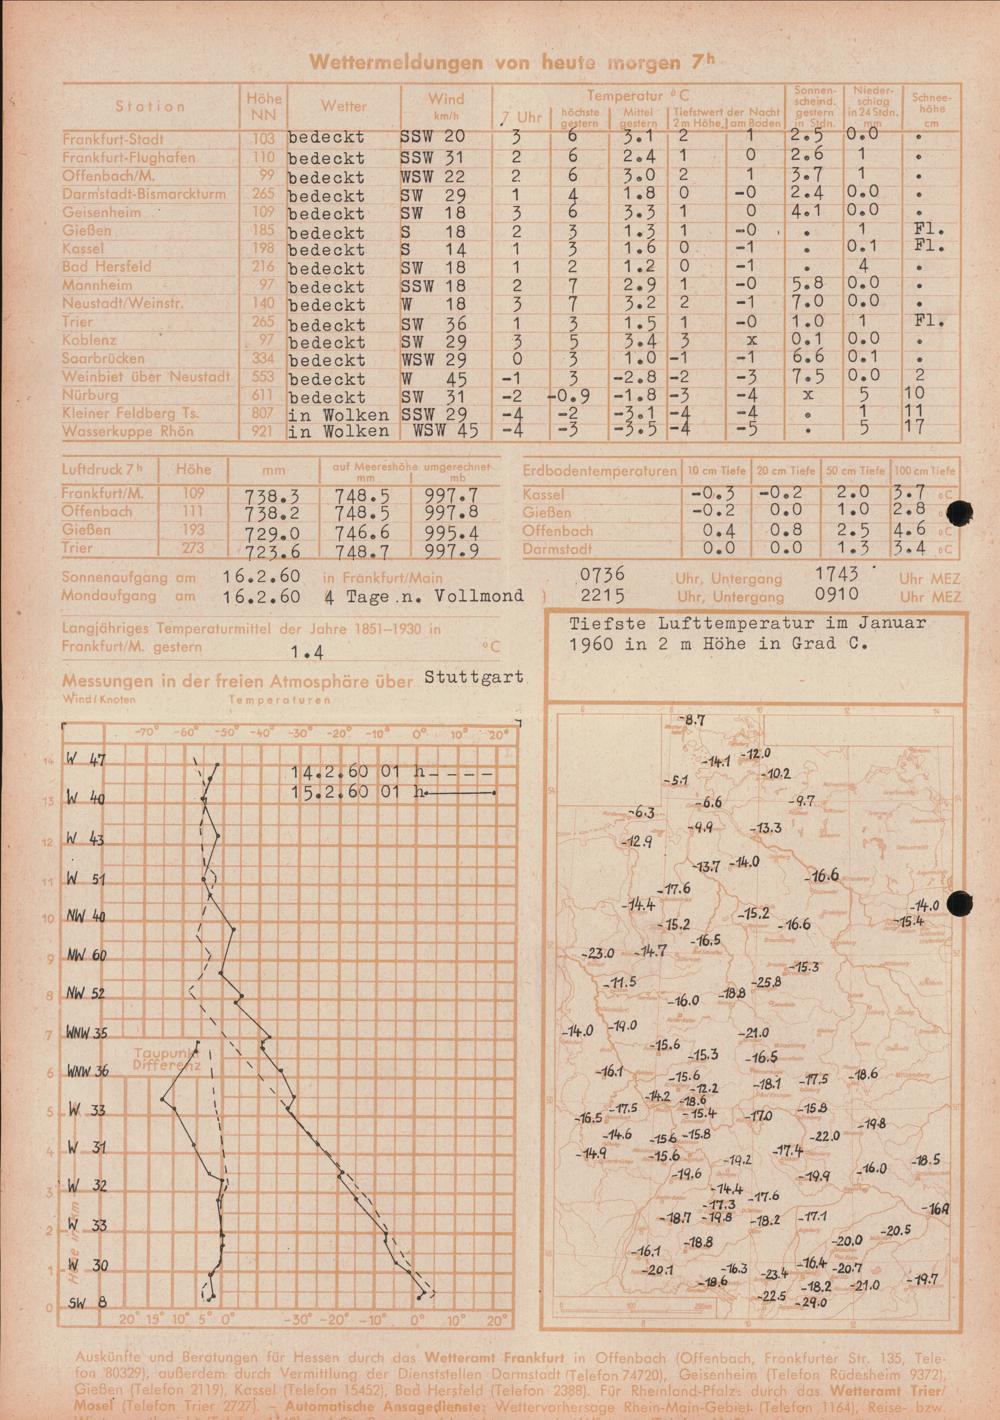 Wettermeldungen von heute morgen 7h
Station Höhe NN Wetter Wind km/h Temperatur °C 7 Uhr höchste gestern Mittel gestern Tiefstwert der Nacht 2m Höhe am Boden Sonnen-scheind. gestern in Stdn. Nieder-schlag in 24 Stdn. mm Schnee-höhe cm
Frankfurt-Stadt 103 bedeckt SSW 20 3 6 3.1 2 1 2.5 0.0 .
Frankfurt-Flughafen 110 bedeckt SSW 31 2 6 2.4 1 0 2.6 1 .
Offenbach/M. 99 bedeckt WSW 22 2 6 3.0 2 1 3.7 1 .
Darmstadt-Bismarckturm 265 bedeckt SW 29 1 4 1.8 0 -0 2.4 0.0 .
Geisenheim 109 bedeckt SW 18 3 6 3.3 1 0 4.1 0.0 .
Gießen 185 bedeckt S 18 2 3 1.3 1 -0 . 1 Fl.
Kassel 198 bedeckt S 14 1 3 1.6 0 -1 . 0.1 Fl.
Bad Hersfeld 216 bedeckt SW 18 1 2 1.2 0 -1 . 4 .
Mannheim 97 bedeckt SSW 18 2 7 2.9 1 -0 5.8 0.0 .
Neustadt/Weinstr. 140 bedeckt W 18 3 7 3.2 2 -1 7.0 0.0 .
Trier 265 bedeckt SW 36 1 3 1.5 1 -0 1.0 1 Fl.
Koblenz 97 bedeckt SW 29 3 5 3.4 3 x 0.1 0.0 .
Saarbrücken 334 bedeckt WSW 29 0 3 1.0 -1 -1 6.6 0.1 .
Weinbiet über Neustadt 553 bedeckt W 45 -1 3 -2.8 -2 -3 7.5 0.0 2
Nürburg 611 bedeckt SW 31 -2 -0.9 -1.8 -3 -4 x 5 10
Kleiner Feldberg Ts. 807 in Wolken SSW 29 -4 -2 -3.1 -4 -4 . 1 11
Wasserkuppe Rhön 921 in Wolken WSW 45 -4 -3 -3.5 -4 -5 . 5 17
Luftdruck 7h Höhe mm auf Meereshöhe umgerechnet mm mb
Frankfurt/M. 109 738.3 748.5 997.7
Offenbach 111 738.2 748.5 997.8
Gießen 193 729.0 746.6 995.4
Trier 273 723.6 748.7 997.9
Erdbodentemperaturen 10 cm Tiefe 20 cm Tiefe 50 cm Tiefe 100 cm Tiefe
Kassel -0.3 -0.2 2.0 3.7 °C
Gießen -0.2 0.0 1.0 2.8
Offenbach 0.4 0.8 2.5 4.6 °C
Darmstadt 0.0 0.0 1.3 3.4 °C
Sonnenaufgang am 16.2.60 in Frankfurt/Main 0736 Uhr, Untergang 1743 Uhr MEZ
Mondaufgang am 16.2.60 4 Tage n. Vollmond ) 2215 Uhr, Untergang 0910 Uhr MEZ
Langjähriges Temperaturmittel der Jahre 1851-1930 in
Frankfurt/M. gestern 1.4 °C
Messungen in der freien Atmosphäre über Stuttgart
Wind/Knoten Temperaturen
-70° -60° -50° -40° -30° -20° -10° 0° 10° 20°
14 W 47
14.2.60 01 h
15.2.60 01 h
13 W 40
12 W 43
11 W 51
10 NW 40
9 NW 60
8 NW 52
7 WNW 35
Taupunkt
Differenz
6 WNW 36
5 W 33
4 W 31
3 W 32
2 W 33
1 W 30
0 SW 8
Höhe in km
20° 15° 10° 5° 0° -30° -20° -10° 0° 10° 20°
Tiefste Lufttemperatur im Januar
1960 in 2 m Höhe in Grad C.
-8.7
-14.1 -12.0
-5.1 -10.2
-6.3 -6.6 -9.7
-12.9 -9.9 -13.3
-13.7 -14.0
-17.6 -16.6
-14.4 -14.0
-15.2 -15.2 -16.6 -15.4
-23.0 -14.7 -16.5
-15.3
-11.5 -25.8
-16.0 -18.8
-14.0 -19.0 -21.0
-15.6
-15.3 -16.5
-16.1 -15.6 -18.1 -17.5 -18.6
-12.2
-14.2 -18.6
-16.5 -17.5 -15.4 -17.0 -15.8
-19.8
-14.6 -15.6 -15.8 -22.0
-14.9 -15.6 -19.2 -17.4 -18.5
-19.6 -19.9 -16.0
-14.4
-17.3 -17.6
-18.7 -19.8 -18.2 -17.1
-20.5
-16.1 -18.8 -20.0
-20.1 -16.3 -16.4 -20.7
-18.6 -23.4 -19.7
-22.5 -18.2 -21.0
-29.0
Auskünfte und Beratungen für Hessen durch das Wetteramt Frankfurt in Offenbach (Offenbach, Frankfurter Str. 135, Tele-
fon 80329), außerdem durch Vermittlung der Dienststellen Darmstadt (Telefon 74720), Geisenheim (Telefon Rüdesheim 9372),
Gießen (Telefon 2119), Kassel (Telefon 15452), Bad Hersfeld (Telefon 2388). Für Rheinland-Pfalz: durch das Wetteramt Trier/
Mosel (Telefon Trier 2727). - Automatische Ansagedienste: Wettervorhersage Rhein-Main-Gebiet (Telefon 1164), Reise- bzw.